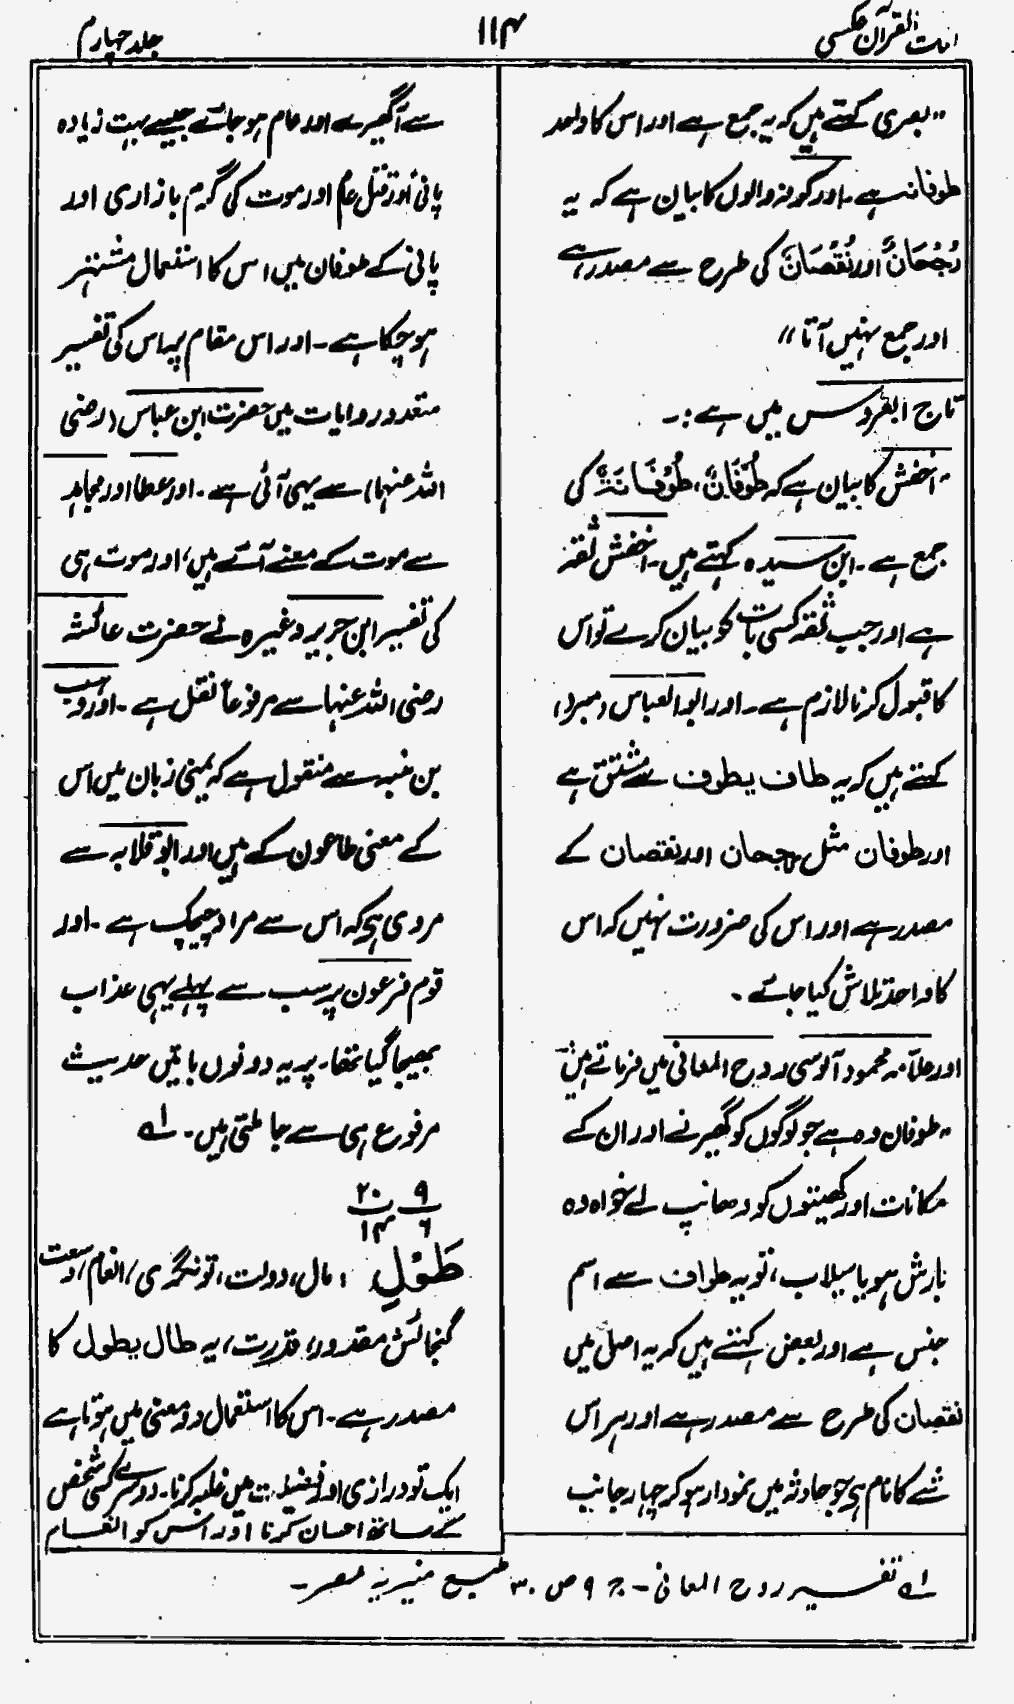 لغات القرآن عکسی
۱۱۴
جلد چہارم
"بصری کہتے ہیں کہ یہ جمع ہے اور اس کا واحد
طوفانہ ہے۔ اور کوفہ والوں کا بیان ہے کہ یہ
رُجْحَانٌ اور نُقْصَانٌ کی طرح سے مصدر ہے
اور جمع نہیں آتا"
تاج العروس میں ہے:۔
"اخفش کا بیان ہے کہ طُوْفَانٌ، طُوْفَانَةٌ کی
جمع ہے۔ ابن سیدہ کہتے ہیں۔ اخفش ثقہ
ہے اور جب ثقہ کسی بات کو بیان کرے تو اس
کا قبول کرنا لازم ہے۔ اور ابو العباس (مبرد)
کہتے ہیں کہ یہ طاف یطوف سے مشتق ہے
اور طوفان مثل رجحان اور نقصان کے
مصدر ہے اور اس کی ضرورت نہیں کہ اس
کا واحد تلاش کیا جائے۔
اور علامہ محمود آلوسی روح المعانی میں فرماتے ہیں
"طوفان وہ ہے جو لوگوں کو گھیرنے اور ان کے
مکانات اور کھیتوں کو ڈھانپ لے خواہ وہ
بارش ہو یا سیلاب، تو یہ طواف سے اسم
جنس ہے اور بعض کہتے ہیں کہ یہ اصل میں
نقصان کی طرح سے مصدر ہے اور ہر اس
شے کا نام ہے جو حادثہ میں نمودار ہو کر چہار جانب
سے آگھیرے اور عام ہو جائے جیسے بہت زیادہ
پانی اور قتل عام اور موت کی گرم بازاری اور
پانی کے طوفان میں اس کا استعمال مشتہر
ہو چکا ہے۔ اور اس مقام پر اس کی تفسیر
متعدد روایات میں حضرت ابن عباس (رضی
اللہ عنہما) سے یہی آئی ہے۔ اور عطا اور مجاہد
سے موت کے معنے آئے ہیں، اور موت ہی
کی تفسیر ابن جریر وغیرہ نے حضرت عائشہ
رضی اللہ عنہا سے مرفوعاً نقل ہے۔ اور وہب
بن منبہ سے منقول ہے کہ یمنی زبان میں اس
کے معنی طاعون کے ہیں اور ابو قلابہ سے
مروی ہے کہ اس سے مراد چیچک ہے۔ اور
قوم فرعون پر سب سے پہلے یہی عذاب
بھیجا گیا تھا۔ پر یہ دونوں باتیں حدیث
مرفوع ہی سے جا ملتی ہیں۔ لہ
۹ ۲۰
۶ ۱۴
طَوْلِ: مال، دولت، تونگری، انعام، وسعت
گنجائش مقدور، قدرت، یہ طال یطول کا
مصدر ہے۔ اس کا استعمال دو معنی میں ہوتا ہے
ایک تو درازی اور فضیلت میں غلبہ کرنا۔ دوسرے کسی شخص
کے ساتھ احسان کرنا اور اس کو انعام
لہ تفسیر روح المعانی۔ ج ۹ ص ۳۰ طبع منیریہ مصر۔